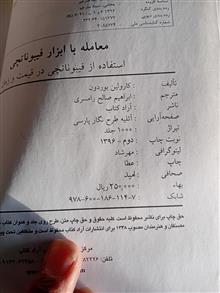 معامله با ابزار فیبوناتچی
استفاده از فیبوناتچی در قیمت و زمان
تألیف : کارولین بورودن
مترجم : ابراهیم صالح رامسری
ناشر : آراد کتاب
صفحه‌آرایی : آتلیه طرح نگار پارسی
تیراژ : ۱۰۰۰ جلد
نوبت چاپ : دوم - ۱۳۹۶
لیتوگرافی : مهرشاد
چاپ : عطا
صحافی :
بهاء : ۲۵۰,۰۰۰ ریال
شابک : ۹۷۸-۶۰۰-۱۸۶-۱۱۴-۷
حق چاپ برای ناشر محفوظ است. کلیه حقوق و حق چاپ متن، طرح روی جلد و عنوان کتاب
مصنفان و هنرمندان مصوب ۱۳۴۸ برای انتشارات آراد کتاب محفوظ است و متخلفین تحت
آراد کتاب
تلفن: